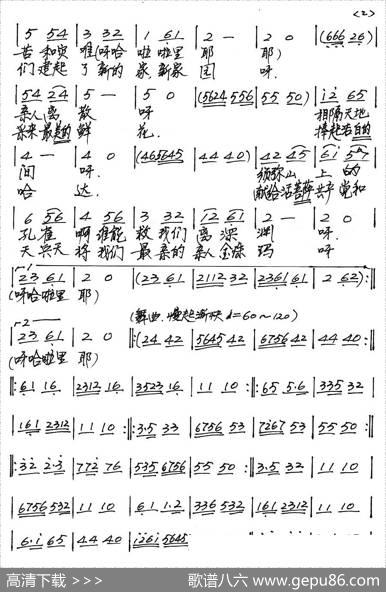 <2>
|5 54|3 32|1 61|2 -|2 0|(666 26)|
苦 和灾 难(呀哈 啦 啦里 耶 耶)
们 建起 了 新的 家,新家 园 呀.
|54 24|5 -|5 0|(5624 556|55 50)|i2 65|
亲人 离 散 呀 相隔天地
采来 最美的 鲜 花.
|4 -|4 0|(465645|44 40)|42 45|61 57|
间 呀. 上 的
哈 达. 献给
|6 56|4 56|3 32|12 61|2 -|2 0|
孔雀 啊 谁能 救 我们 离 深 渊 呀.
天兵天 将 我们 最 亲的 亲人 金珠 玛 呀
1
|23 61|2 0|(23 61|2112 32|2361 61|2 62):||
(呀哈啦里 耶)
2
(舞曲. 慢起渐快 ♩=60～120)
|23 61|2 0|:(24 42|5645 42|6756 42|44 40:||
(呀哈啦里 耶)
||:61 16|2312 16|3523 16|11 10:||:65 5.6|335 32|
|161 2312|11 10:||:3.5 33|6756 53|7267 53|55 50:||
||:32 2.3|772 76|535 6756|55 50:||:3.5 32|11 10|
|6756 532|11 10|61 1.2|336 532|161 2312|11 10|
|6.i 65|44 40|i26i 5645
高清下载 >>> 歌谱八六 www.gepu86.com